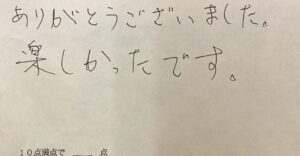 ありがとうございました。
楽しかったです。
10点満点で＿＿点